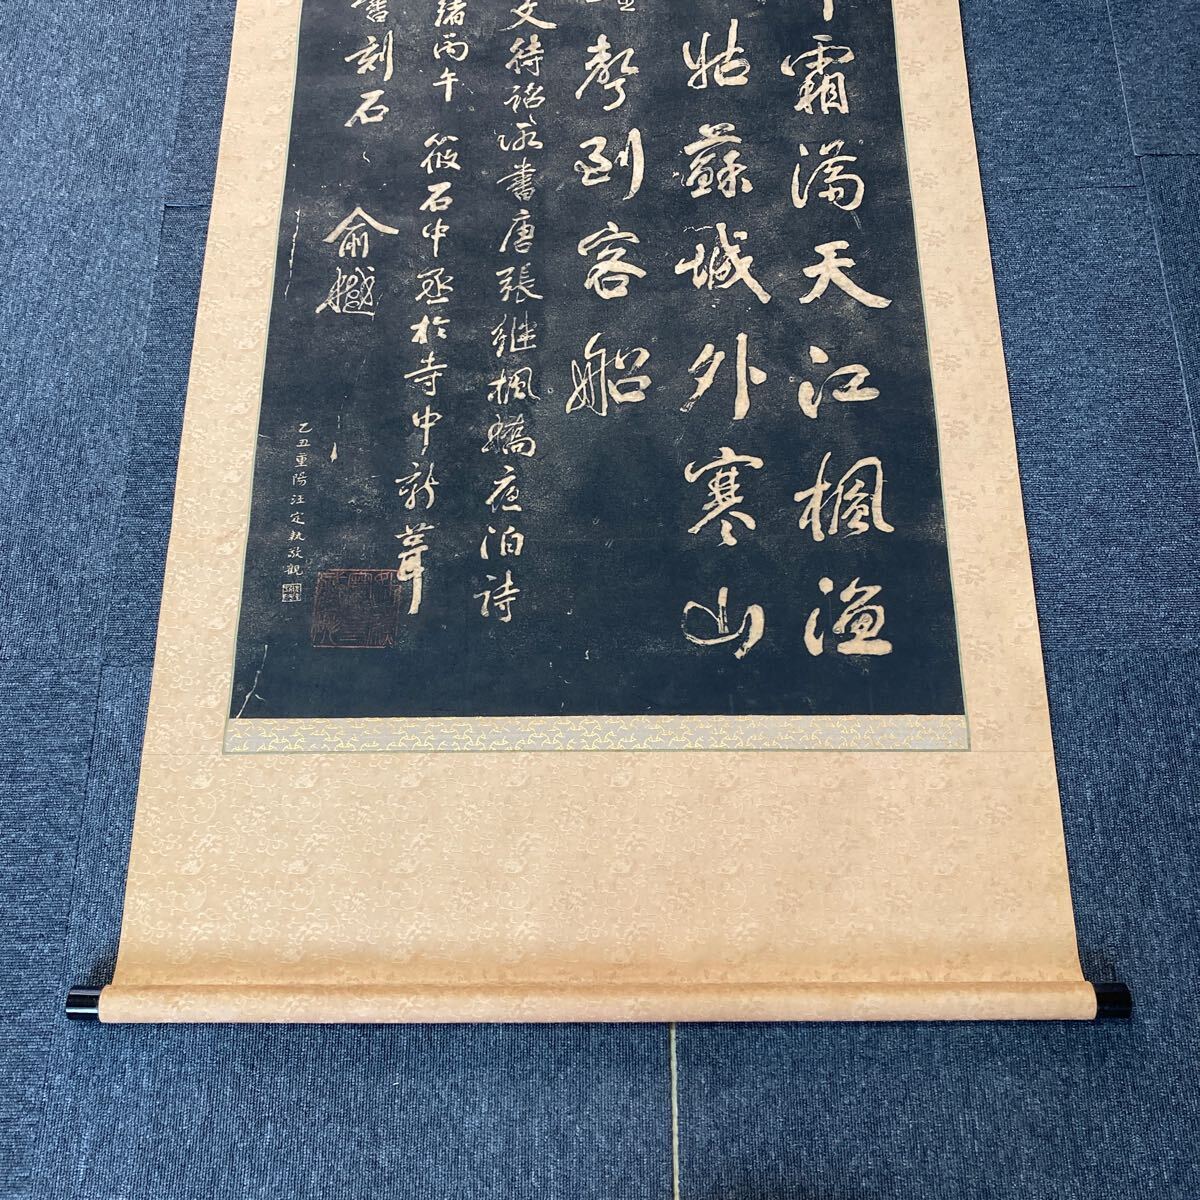 霜滿天江楓漁
姑蘇城外寒山
聲到客船
文待詔詠書唐張继楓橋夜泊詩
緒丙午 筱石中丞於寺中新葺
書刻石 俞樾
乙丑重陽汪定執敬觀